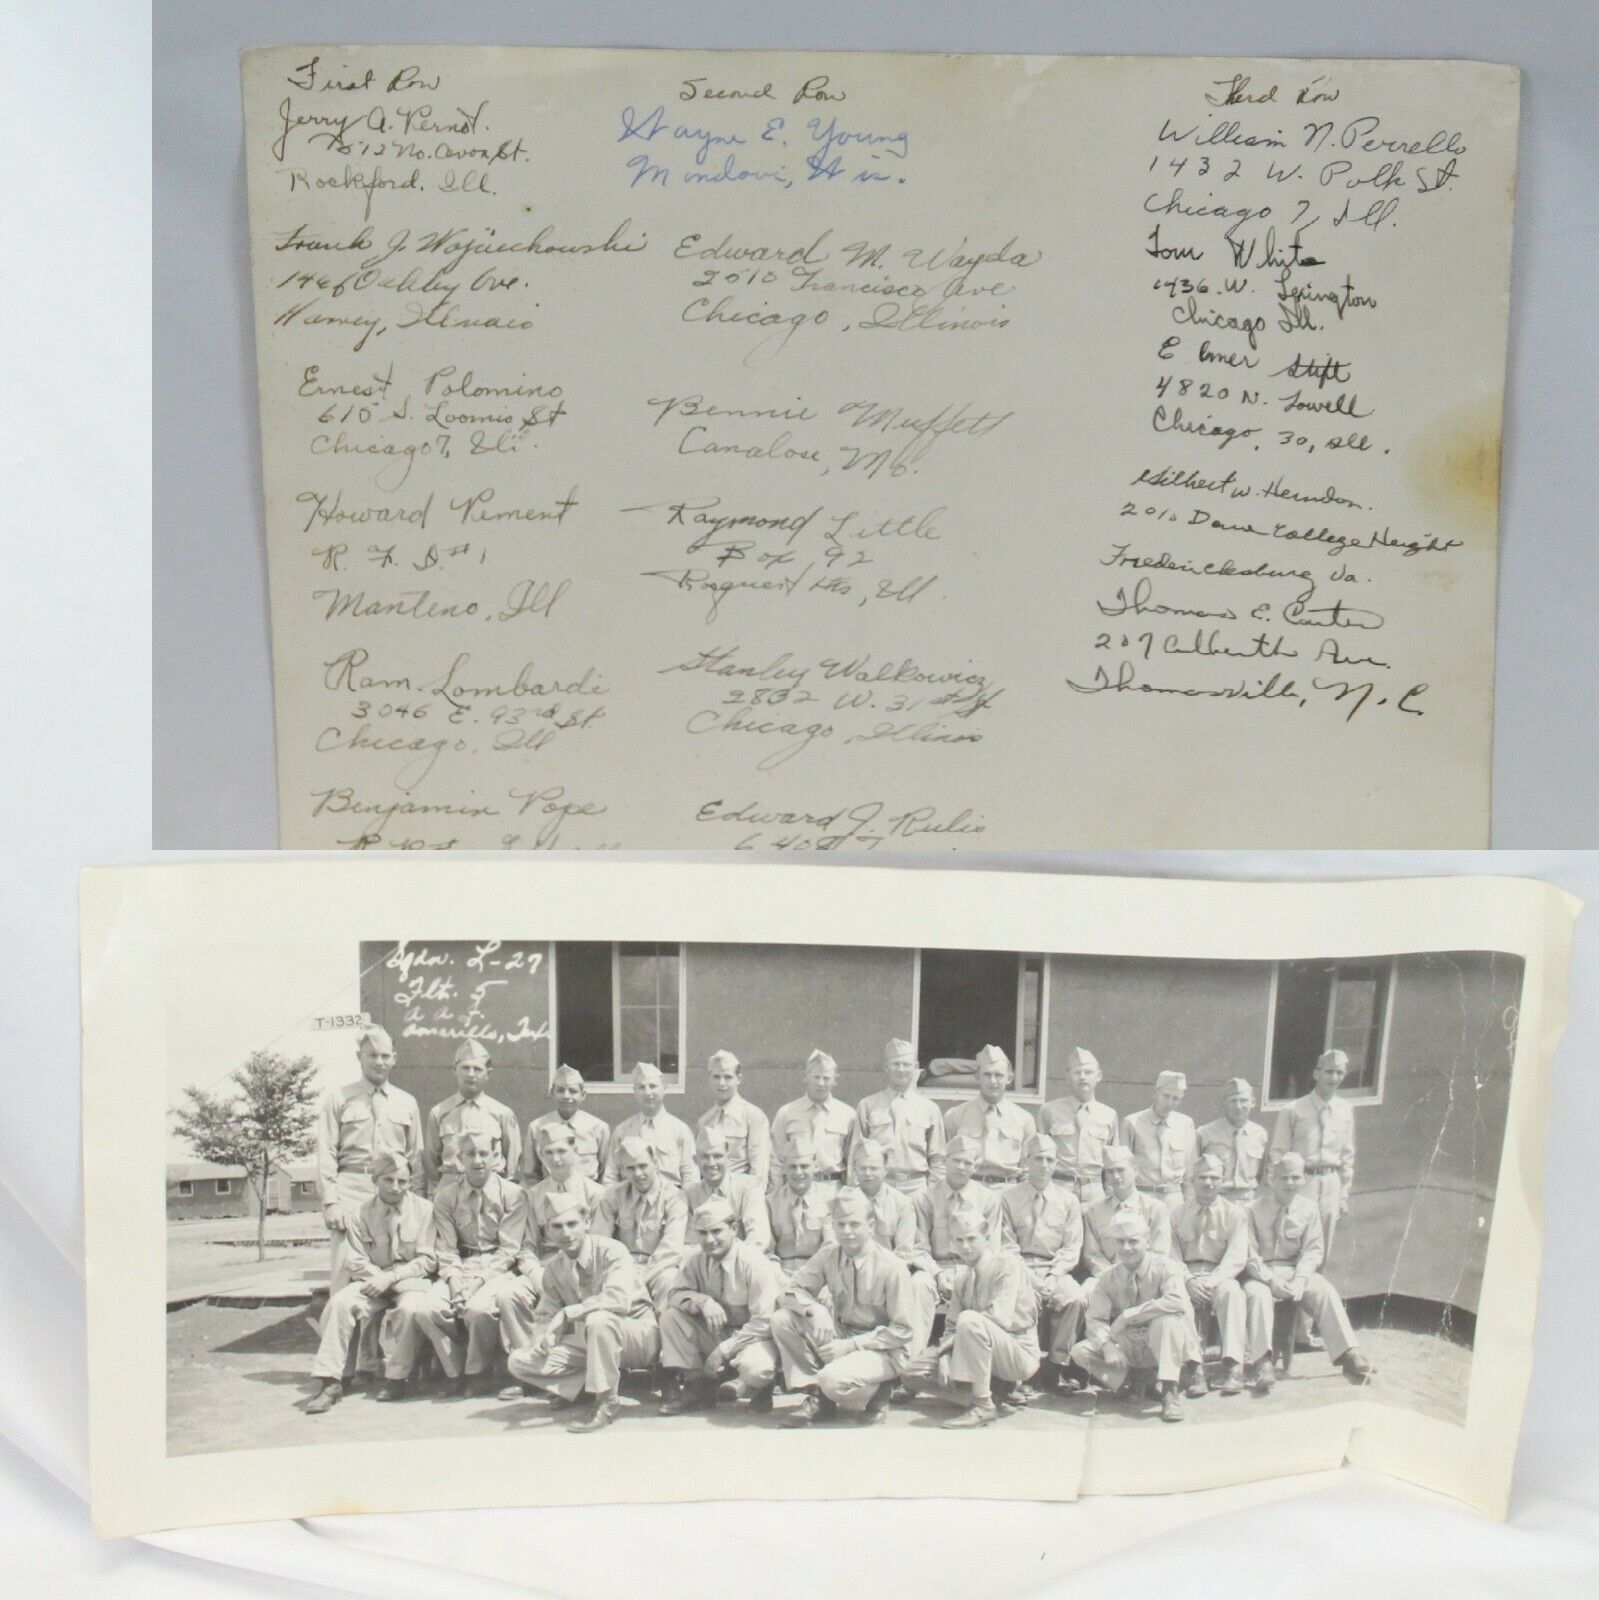 First Row
Jerry A. Pernot.
512 No. Avon St.
Rockford, Ill.
Frank J. Wojciechowski
Oakley Ave.
Harvey, Illinois
Ernest Polomino
610 S. Loomis St
Chicago 7, Ill.
Howard Pement
R. F. D. #1
Manteno, Ill
Ram Lombardi
3046 E. 93rd St.
Chicago, Ill
Benjamin Pope
Second Row
Wayne E. Young
Mondovi, Wis.
Edward M. Wayda
2510 Francisco Ave
Chicago, Illinois
Bennie Muffett
Canalou, Mo.
Raymond Little
Box 92
Hts, Ill.
Stanley Walkowicz
2832 W. 31st St
Chicago, Illinois
Edward J. Rulis
Third Row
William N. Perrello
1432 W. Polk St.
Chicago 7, Ill.
Tom White
1436 W. Lexington
Chicago Ill.
Elmer Stift
4820 N. Lowell
Chicago, 30, Ill.
Gilbert W. Herndon.
2010 College Height
Fredericksburg Va.
Thomas E. Carter
207 Ave.
Thomasville, N.C.
Sqdn. L-27
Flt. 5
A A F.
Amarillo, Tex
T-1332